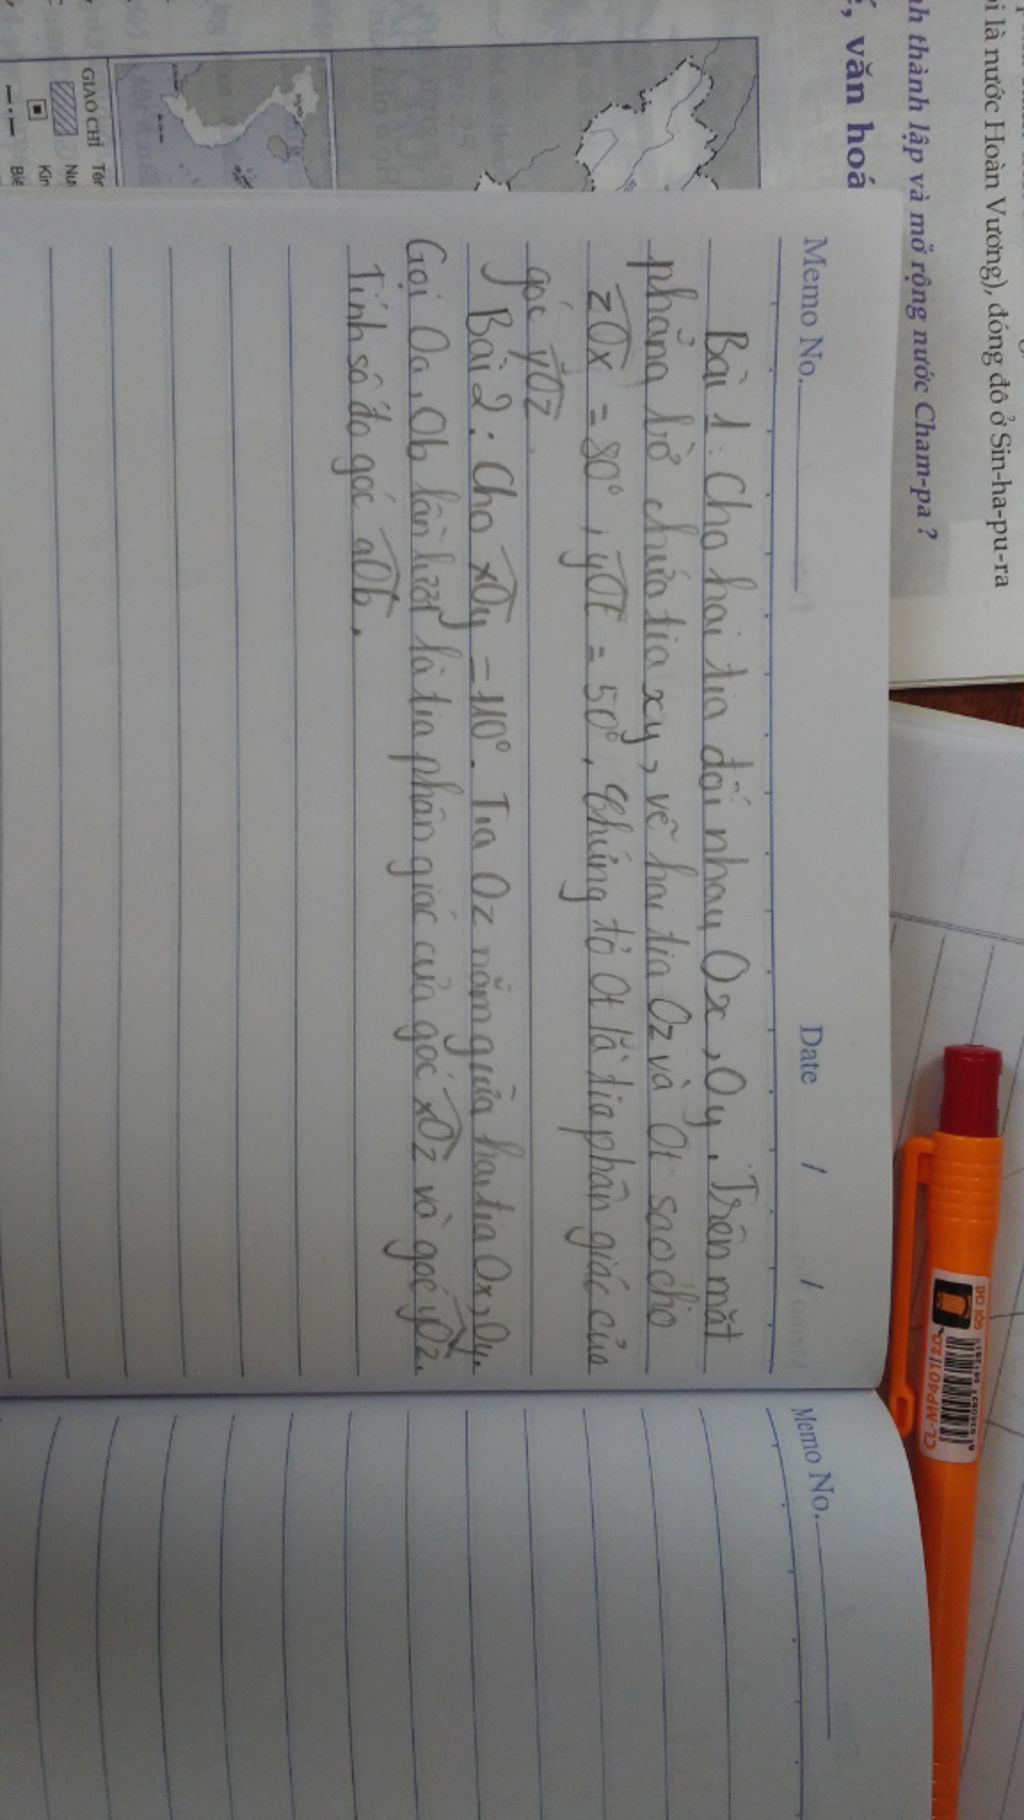 i là nước Hoàn Vương), đóng đô ở Sin-ha-pu-ra
nh thành lập và mở rộng nước Cham-pa ?
, văn hoá
GIAO CHỈ
Memo No.
Date / /
Bài 1: Cho hai tia đối nhau Ox, Oy. Trên mặt
phẳng bờ chứa tia xy, vẽ hai tia Oz và Ot sao cho
zOx = 80°, yOt = 50°. Chứng tỏ Ot là tia phân giác của
góc yOz.
Bài 2: Cho xOy = 110°. Tia Oz nằm giữa hai tia Ox, Oy.
Gọi Oa, Ob lần lượt là tia phân giác của góc xOz và góc yOz.
Tính số đo góc aOb.
Memo No.
CL-MP401/02